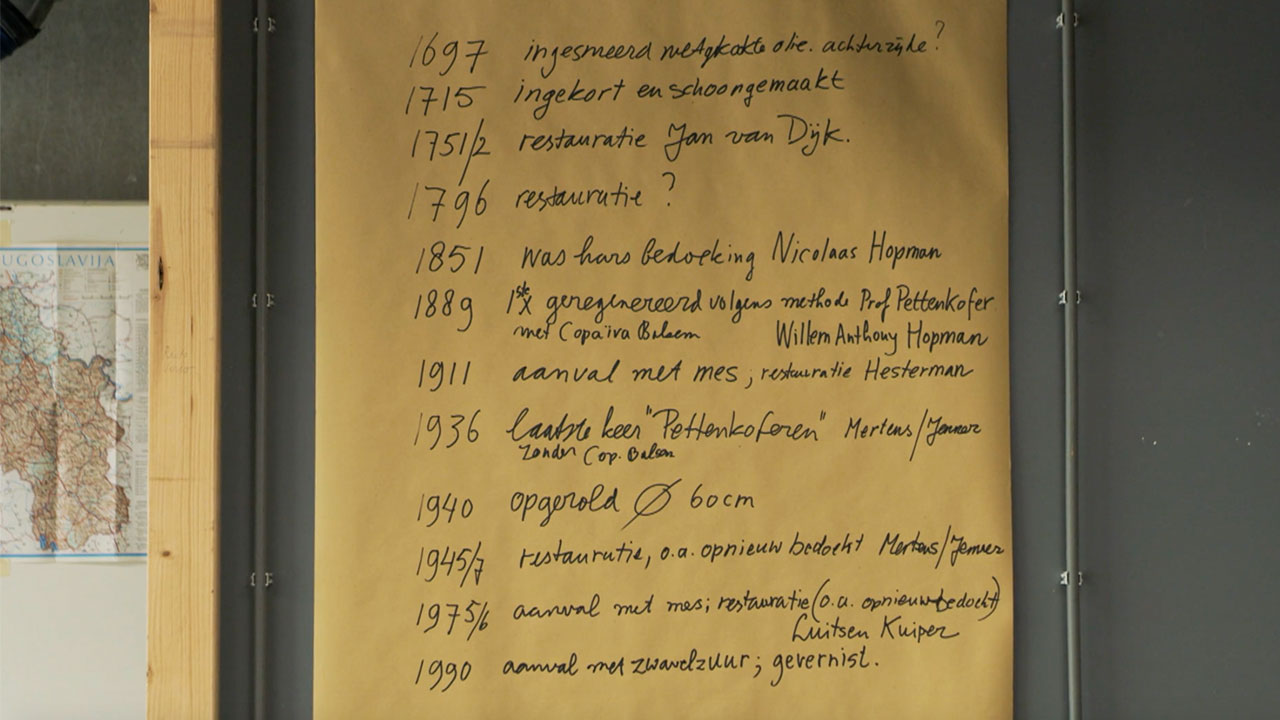 UGOSLAVIJA
1697 ingesmeerd met gekookte olie. achterzijde?
1715 ingekort en schoongemaakt
1751/2 restauratie Jan van Dijk.
1796 restauratie ?
1851 was hars bedoeking Nicolaas Hopman
1889 1ste X geregenereerd volgens methode Prof Pettenkofer
met Copaïva Balsem Willem Anthony Hopman
1911 aanval met mes ; restauratie Hesterman
1936 laatste keer "Pettenkoferen" Mertens/Jenner
zonder Cop. Balsem
1940 opgerold Ø 60cm
1945/7 restauratie, o.a. opnieuw bedoekt Mertens/Jenner
1975/6 aanval met mes; restauratie (o.a. opnieuw bedoekt)
Luitsen Kuiper
1990 aanval met zwavelzuur; gevernist.